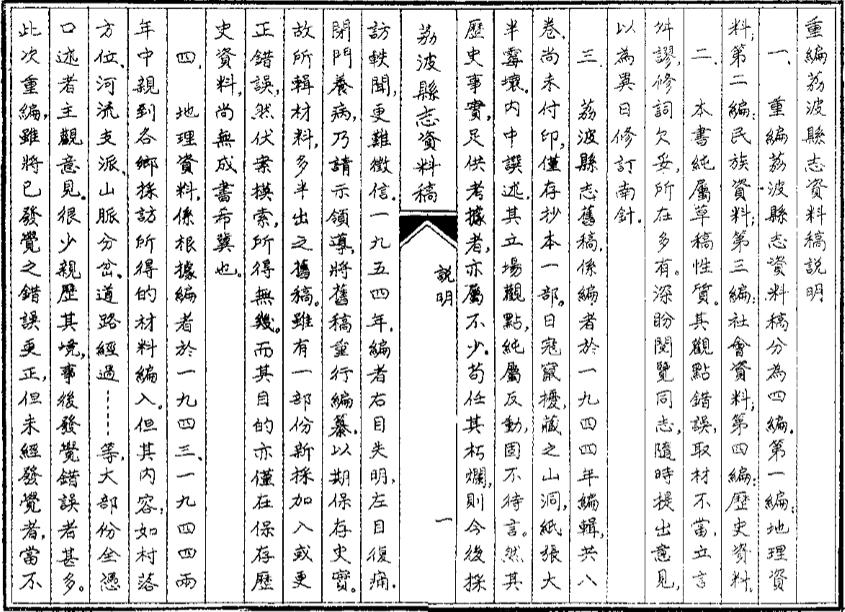 重編荔波縣志資料稿說明
一、重編荔波縣志資料稿分為四編。第一編:地理資
料;第二編:民族資料;第三編:社會資料;第四編:歷史資料。
二、本書純屬草稿性質。其觀點錯誤,取材不當,立言
舛謬,修詞欠妥,所在多有。深盼閱覽同志,隨時提出意見,
以為異日修訂南針。
三、荔波縣志舊稿,係編者於一九四四年編輯,共八
卷,尚未付印,僅存抄本一部。日寇竄擾,藏之山洞,紙張大
半霉壞。內中譔述,其立場觀點,純屬反動,固不待言。然其
歷史事實,足供考據者,亦屬不少。苟任其朽爛,則今後採
荔波縣志資料稿
說明
一
訪軼聞,更難徵信。一九五四年,編者右目失明,左目復痛。
閉門養病,乃請示領導,將舊稿重行編纂,以期保存史實。
故所輯材料,多半出之舊稿。雖有一部份新採加入或更
正錯誤,然伏案摸索,所得無幾。而其目的亦僅在保存歷
史資料,尚無成書希冀也。
四、地理資料,係根據編者於一九四三、一九四四兩
年中親到各鄉採訪所得的材料編入。但其內容,如村落
方位、河流支派、山脈分岔、道路經過……等,大部份全憑
口述者主觀意見。很少親歷其境,事後發覺錯誤者甚多。
此次重編,雖將已發覺之錯誤更正,但未經發覺者,當不